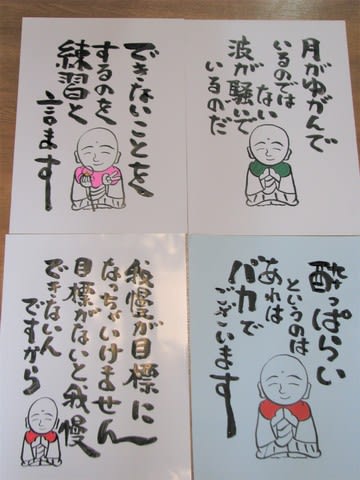 できないことを
するのを
練習と
言ます
月がゆがんで
いるのでは
ない
波が騒いで
いるのだ
我慢が目標に
なっちゃいけません
目標がないと、我慢
できないん
ですから
酔っぱらい
というのは
あれは
バカで
ございます